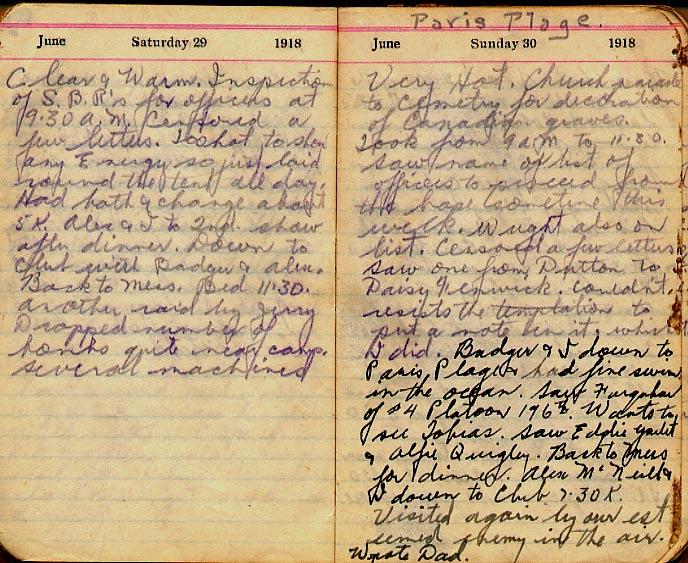 June Saturday 29 1918
Clear & Warm. Inspection
of S.B.R's for officers at
9.30 a.m. Censored a
few letters. Too hot to show
any Energy so just laid
round the tent all day.
Had bath & change about
5 K. Alex & I to 2nd. show
after dinner. Down to
Club with Badger & Alex.
Back to Mess. Bed 11.30.
another raid by Jerry
Dropped number of
bombs quite near camp.
Several machines
Paris Plage.
June Sunday 30 1918
Very Hot. Church parade
to Cemetry for decoration
of Canadian graves.
Took from 9 a.m. to 11.30.
Saw name on list of
officers to proceed from
the base sometime this
week. Wright also on
list. Censored a few letters
Saw one from Dutton to
Daisy Fenwick. Couldn't
resists the temptation to
put a note in it, which
I did. Badger & I down to
Paris Plage & had fine swim
in the ocean. Saw Farquhar
of #4 Platoon 196th. Wants to
see Tobias. Saw Eddie
& Alfie Quigley. Back to Mess
for dinner. Alex McNeill &
I down to Club 7.30 K.
Visited again by our est
eemed enemy in the air.
Wrote Dad.